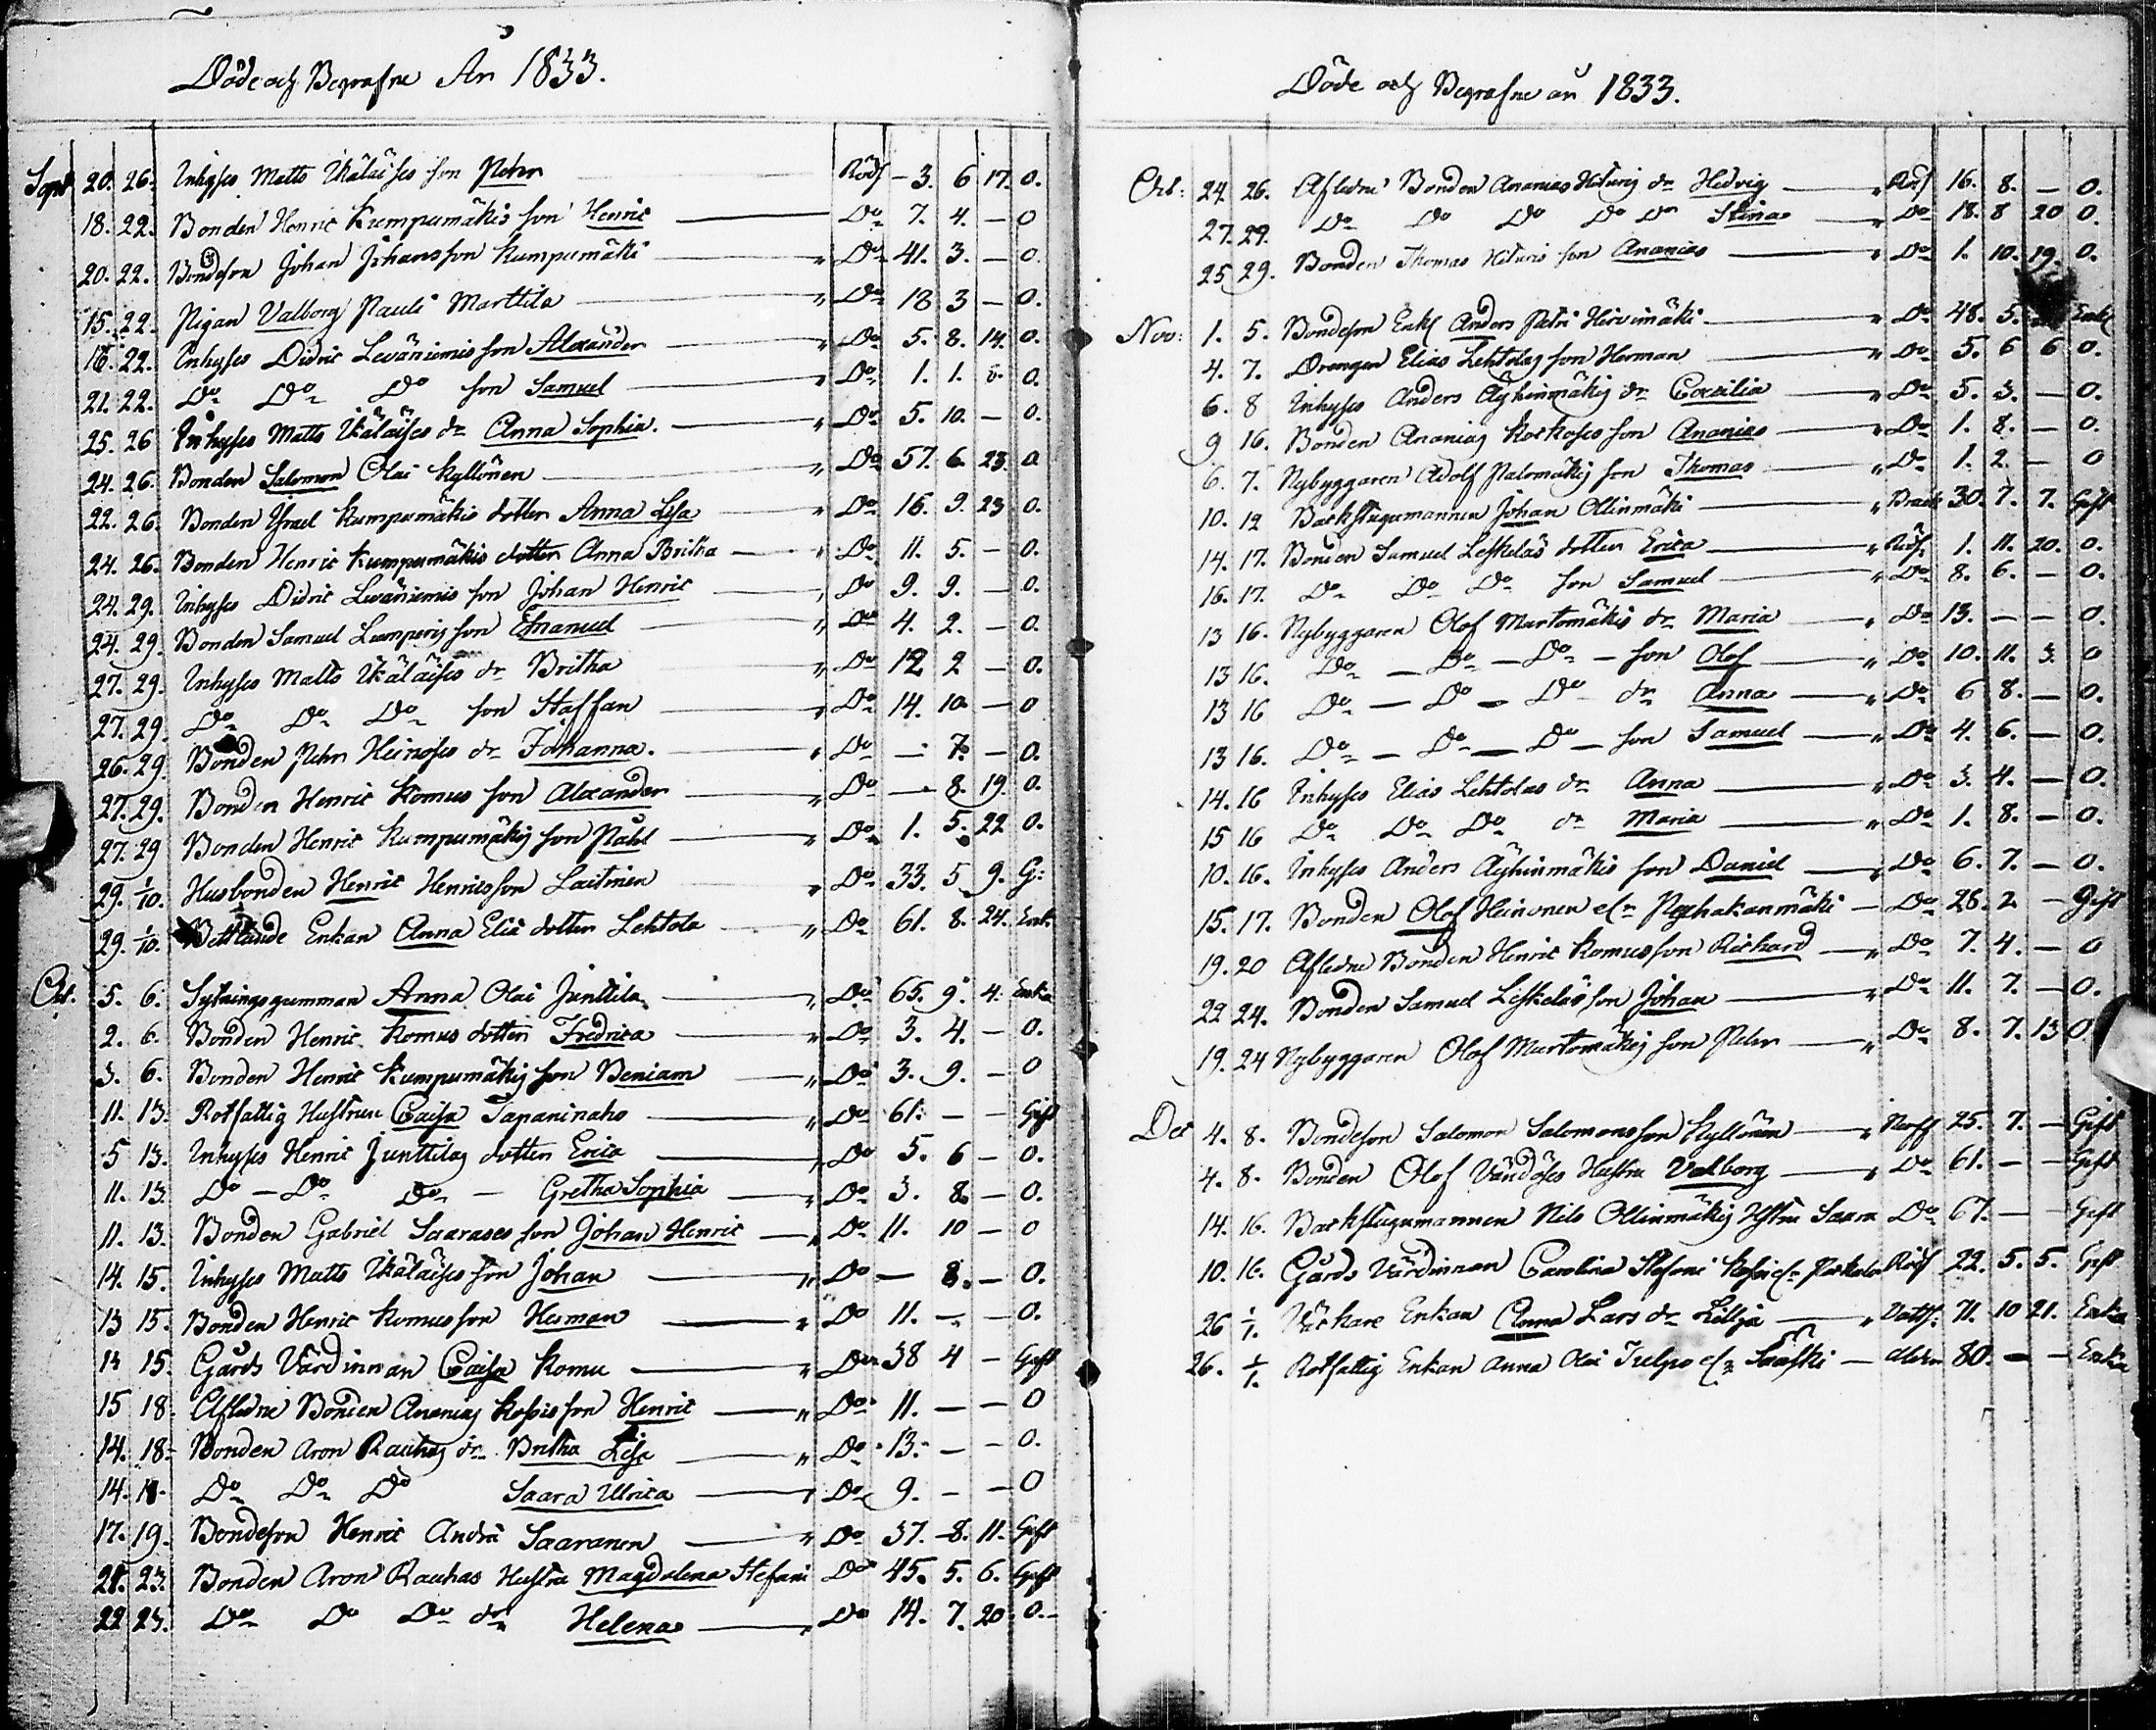 Döde och Begrafne År 1833.
Sept 20. 26. Inhyses Matts Ikäläises son Petter Röds 3. 6 17. 0.
18. 22. Bonden Henric Kumpumäkis son Henric Do 7. 4. — 0
20. 22. Bondeson Johan Johansson Kumpumäki Do 41. 3. — 0.
15. 22. Pigan Valborg Pauls Marttila Do 18 3 — 0.
16. 22. Inhyses Didric Leväniemis son Alexander Do 5. 8. 14. 0.
21. 22. Do Do Do son Samuel Do 1. 1. 8. 0.
25. 26 Inhyses Matts Ikäläises dr Anna Sophia. Do 5. 10. — 0.
24. 26. Bonden Salomon Olai Kyllönen Do 57. 6. 23. 0
22. 26. Bonden Israel Kumpumäkis dotter Anna Lisa Do 16. 9. 23 0.
24. 26. Bonden Henric Kumpumäkis dotter Anna Britha Do 11. 5. — 0.
24. 29. Inhyses Didric Leväniemis son Johan Henric Do 9. 9. — 0.
24. 29. Bonden Samuel Lumperis son Emanuel Do 4. 2. — 0.
27. 29. Inhyses Matts Ikäläises dr Britha Do 12 2 — 0.
27. 29. Do Do Do son Staffan Do 14. 10. — 0
26. 29. Bonden Petter Heinoses dr Johanna. Do — 7. — 0.
27. 29. Bonden Henric Komus son Alexander Do — 8. 19. 0.
27. 29 Bonden Henric Kumpumäkis son Påhl Do 1. 5. 22 0.
29. 1/10. Husbonden Henric Henricsson Laitinen Do 33. 5 9. G:
29. 1/10. Bettlande Enkan Anna Elis dotter Lehtola Do 61. 8. 24. Enk.
Oct. 5. 6. Sytningsgumman Anna Olai Junttila Do 65. 9. 4. Enka
2. 6. Bonden Henric Komus dotter Fredrica Do 3. 4. — 0.
3. 6. Bonden Henric Kumpumäkis son Beniam Do 3. 9. — 0
11. 13. Rotfattig Hustrun Caisa Tapaninaho Do 61. — — Gift
5 13. Inhyses Henric Junttilas dotter Erica Do 5. 6 — 0.
11. 13. Do — Do Do — Gretha Sophia Do 3. 8. — 0.
11. 13. Bonden Gabriel Saarases son Johan Henric Do 11. 10 — 0
14. 15. Inhyses Matts Ikäläises son Johan Do — 8. — 0.
13 15. Bonden Henric Komus son Herman Do 11. — — 0.
14 15. Gårds Värdinnan Caisa Komu Do 38 4 — Gift
15 18. Afledne Bonden Ananias Kossis son Henric Do 11. — — 0
14. 18. Bonden Aron Rauhas dr Britha Lisa Do 13. — — 0.
14. 18. Do Do Do Saara Ulrica Do 9. — — 0
17. 19. Bondeson Henric Andra Saaranen Do 37. 8. 11. Gift
21. 23. Bonden Aron Rauhas Hustru Magdalena Stefani Do 45. 5. 6. Gift
22 23. Do Do Do dr Helena Do 14. 7. 20. 0.
Döde och Begrafne år 1833.
Oct: 24. 26. Afledne Bonden Ananias Hituris dr Hedvig Röds 16. 8. — 0.
27. 29. Do Do Do Do dr Stina Do 18. 8 20 0.
25 29. Bonden Thomas Hituris son Ananias Do 1. 10. 19. 0.
Nov: 1. 5. Bondeson Enkl Anders Petri Hirvimäki Do 48. 5. Enkl
4. 7. Drengen Elias Lehtolas son Herman Do 5. 6 6 0.
6. 8 Inhyses Anders Äyhinmäkis dr Cæcilia Do 5. 3. — 0.
9 16. Bonden Ananias Korkoses son Ananias Do 1. 8. — 0.
6. 7. Nybyggaren Adolf Palomäkis son Thomas Do 1. 2. — 0
10. 12 Backstugumannen Johan Ollinmäki 30. 7. 7. Gift
14. 17. Bonden Samuel Leskeläs dotter Erica Röds 1. 11. 20. 0.
16. 17. Do Do Do son Samuel Do 8. 6. — 0.
13 16. Nybyggaren Olof Murtomäkis dr Maria Do 13. — — 0.
13 16. Do — Do — Do — son Olof Do 10. 11. 3. 0
13 16 Do — Do — Do dr Anna Do 6 8. — 0.
13 16. Do — Do — Do — son Samuel Do 4. 6. — 0.
14. 16 Inhyses Elias Lehtolas dr Anna Do 3. 4. — 0.
15 16 Do Do Do dr Maria Do 1. 8. — 0.
10. 16. Inhyses Anders Äyhinmäkis son Daniel Do 6. 7. — 0.
15. 17. Bonden Olof Heinonen elr Pyhakanmäki Do 28. 2. — Gift
19. 20 Afledne Bonden Henric Komus son Richard Do 7. 4. — 0
22 24. Bonden Samuel Leskeläs son Johan Do 11. 7. — 0.
19. 24 Nybyggaren Olof Murtomäkis son Petter Do 8. 7. 13 0
Dec 4. 8. Bondeson Salomon Salomonsson Kyllönen 25. 7. — Gift
4. 8. Bonden Olof Hustru Valborg Do 61. — — Gift
14. 16. Backstugumannen Nils Ollinmäkis Hstru Saara Do 67. — — Gift
10. 16. Gårds Värdinnan Carolina Stefani elr Röds 22. 5. 5. Gift
26 1/1. Enkan Anna Lars dr Lillja 71. 10 21. Enka
26. 1/1. Rotfattig Enkan Anna Olai Tulpo elr Sääski — Ålder 80. — — Enka